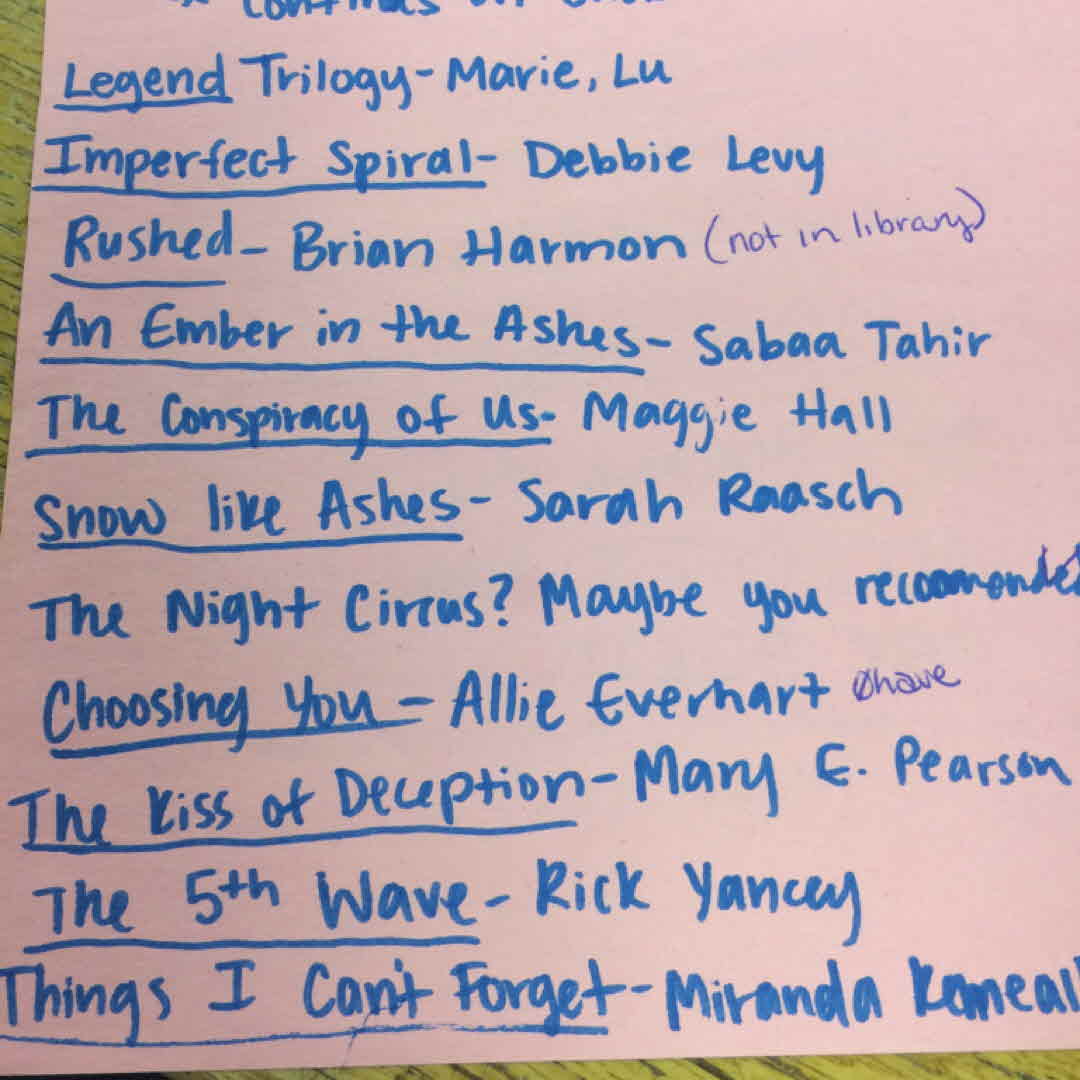 continues on
Legend Trilogy - Marie, Lu
Imperfect Spiral - Debbie Levy
Rushed - Brian Harmon (not in library)
An Ember in the Ashes - Sabaa Tahir
The Conspiracy of Us - Maggie Hall
Snow like Ashes - Sarah Raasch
The Night Circus? Maybe you recoomonded
Choosing You - Allie Everhart Øhave
The Kiss of Deception - Mary E. Pearson
The 5th Wave - Rick Yancey
Things I Can't Forget - Miranda Keneall